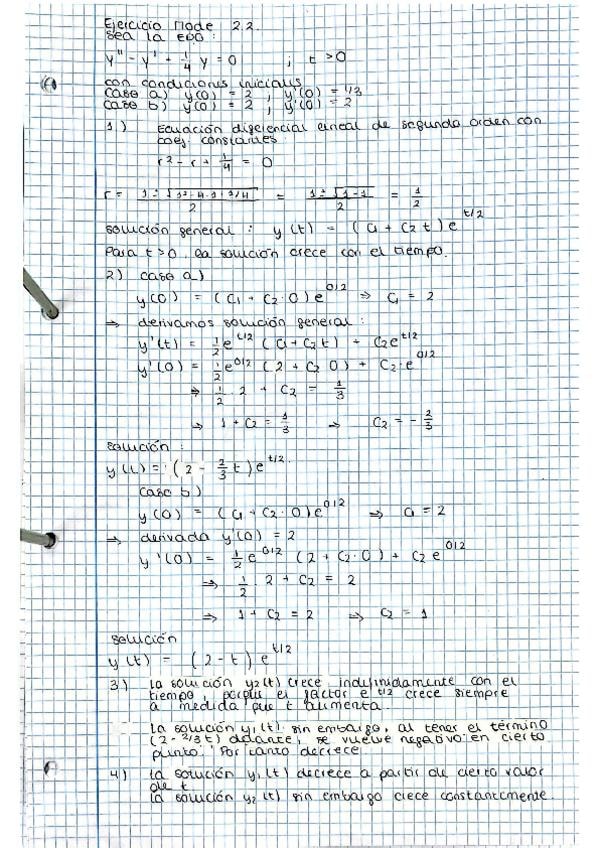 Ejercicio Mode 2.2.
Sea la EDO:
y'' - y' + 1/4 y = 0 ; t > 0
con condiciones iniciales
caso a) y(0) = 2 , y'(0) = 1/3
caso b) y(0) = 2 , y'(0) = 2
1) Ecuación diferencial lineal de segundo orden con
coef constantes
r² - r + 1/4 = 0
r = 1 ± √1² - 4·1·1/4 / 2 = 1 ± √1-1 / 2 = 1/2
solución general : y(t) = (C1 + C2 t) e^t/2
Para t>0, la solución crece con el tiempo.
2) caso a)
y(0) = (C1 + C2·0) e^0/2 ⇒ C1 = 2
⇒ derivamos solución general :
y'(t) = 1/2 e^t/2 (C1 + C2 t) + C2 e^t/2
y'(0) = 1/2 e^0/2 (2 + C2 0) + C2·e^0/2
⇒ 1/2 · 2 + C2 = 1/3
⇒ 1 + C2 = 1/3 ⇒ C2 = - 2/3
solución :
y(t) = (2 - 2/3 t) e^t/2
caso b)
y(0) = (C1 + C2·0) e^0/2 ⇒ C1 = 2
⇒ derivada y'(0) = 2
y'(0) = 1/2 e^0/2 (2 + C2·0) + C2 e^0/2
⇒ 1/2 · 2 + C2 = 2
⇒ 1 + C2 = 2 ⇒ C2 = 1
solución
y(t) = (2 - t) e^t/2
3) la solución y2(t) crece indefinidamente con el
tiempo, porque el factor e^t/2 crece siempre
a medida que t aumenta.
la solución y1(t) sin embargo, al tener el término
(2 - 2/3 t) delante, se vuelve negativo en cierto
punto. Por tanto decrece
4) la solución y1(t) decrece a partir de cierto valor
de t
la solución y2(t) sin embargo crece constantemente.